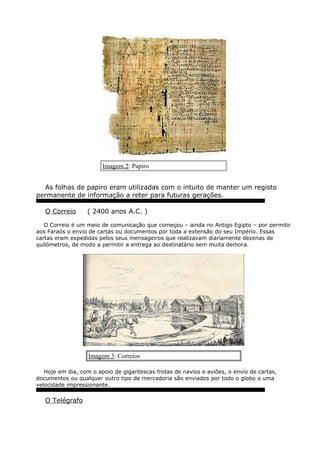 Imagem 2: Papiro
As folhas de papiro eram utilizadas com o intuito de manter um registo
permanente de informação a reter para futuras gerações.
O Correio ( 2400 anos A.C. )
O Correio é um meio de comunicação que começou – ainda no Antigo Egipto – por permitir
aos Faraós o envio de cartas ou documentos por toda a extensão do seu Império. Essas
cartas eram expedidas pelos seus mensageiros que realizavam diariamente dezenas de
quilómetros, de modo a permitir a entrega ao destinatário sem muita demora.
Imagem 3: Correios
Hoje em dia, com o apoio de gigantescas frotas de navios e aviões, o envio de cartas,
documentos ou qualquer outro tipo de mercadoria são enviados por todo o globo a uma
velocidade impressionante.
O Telégrafo